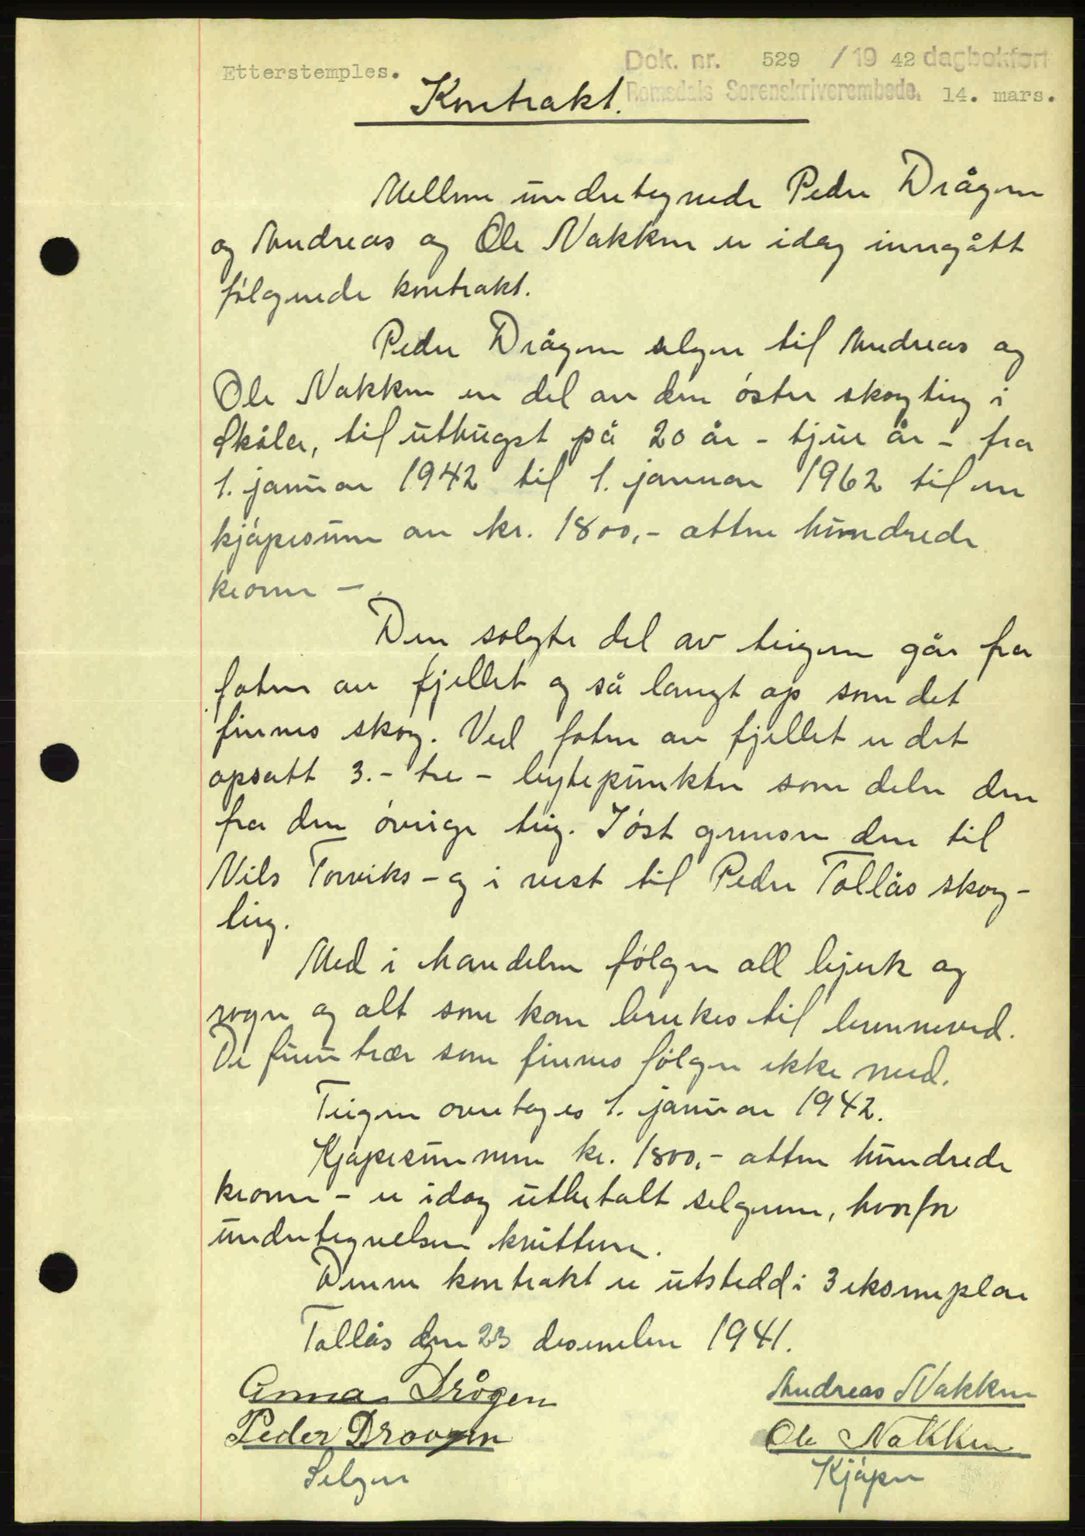 Etterstemples.
Dok. nr. 529 / 19 42 dagbokført
Romsdals Sorenskriverembede. 14. mars.
Kontrakt.
Mellem undertegnede Peder Drågen
og Andreas og Ole Nakken er idag inngått
følgende kontrakt.
Peder Drågen selger til Andreas og
Ole Nakken en del av den øster skogteig i
til uthugst på 20 år - tjue år - fra
1. januar 1942 til 1. januar 1962 til en
kjøpesum av kr. 1800,- atten hundrede
kroner -.
Den solgte del av teigen går fra
foten av fjellet og så langt op som det
finnes skog. Ved foten av fjellet er det
opsatt 3.- tre - bytepunkter som deler den
fra den øvrige teig. I øst grenser den til
Nils Torviks - og i vest til Peder Tollås skog-
teig.
Med i handelen følger all bjerk og
rogn og alt som kan brukes til brenneved.
De furutrær som finnes følger ikke med.
Teigen overtages 1. januar 1942.
Kjøpesummen kr. 1800,- atten hundrede
kroner - er idag utbetalt selgeren, hvorfor
undertegnelsen kvitterer.
Denne kontrakt er utstedd i 3 eksemplar
Tollås den 23 desember 1941.
Anna Drågen
Andreas Nakken
Peder Droogen
Ole Nakken
Selger
Kjøper